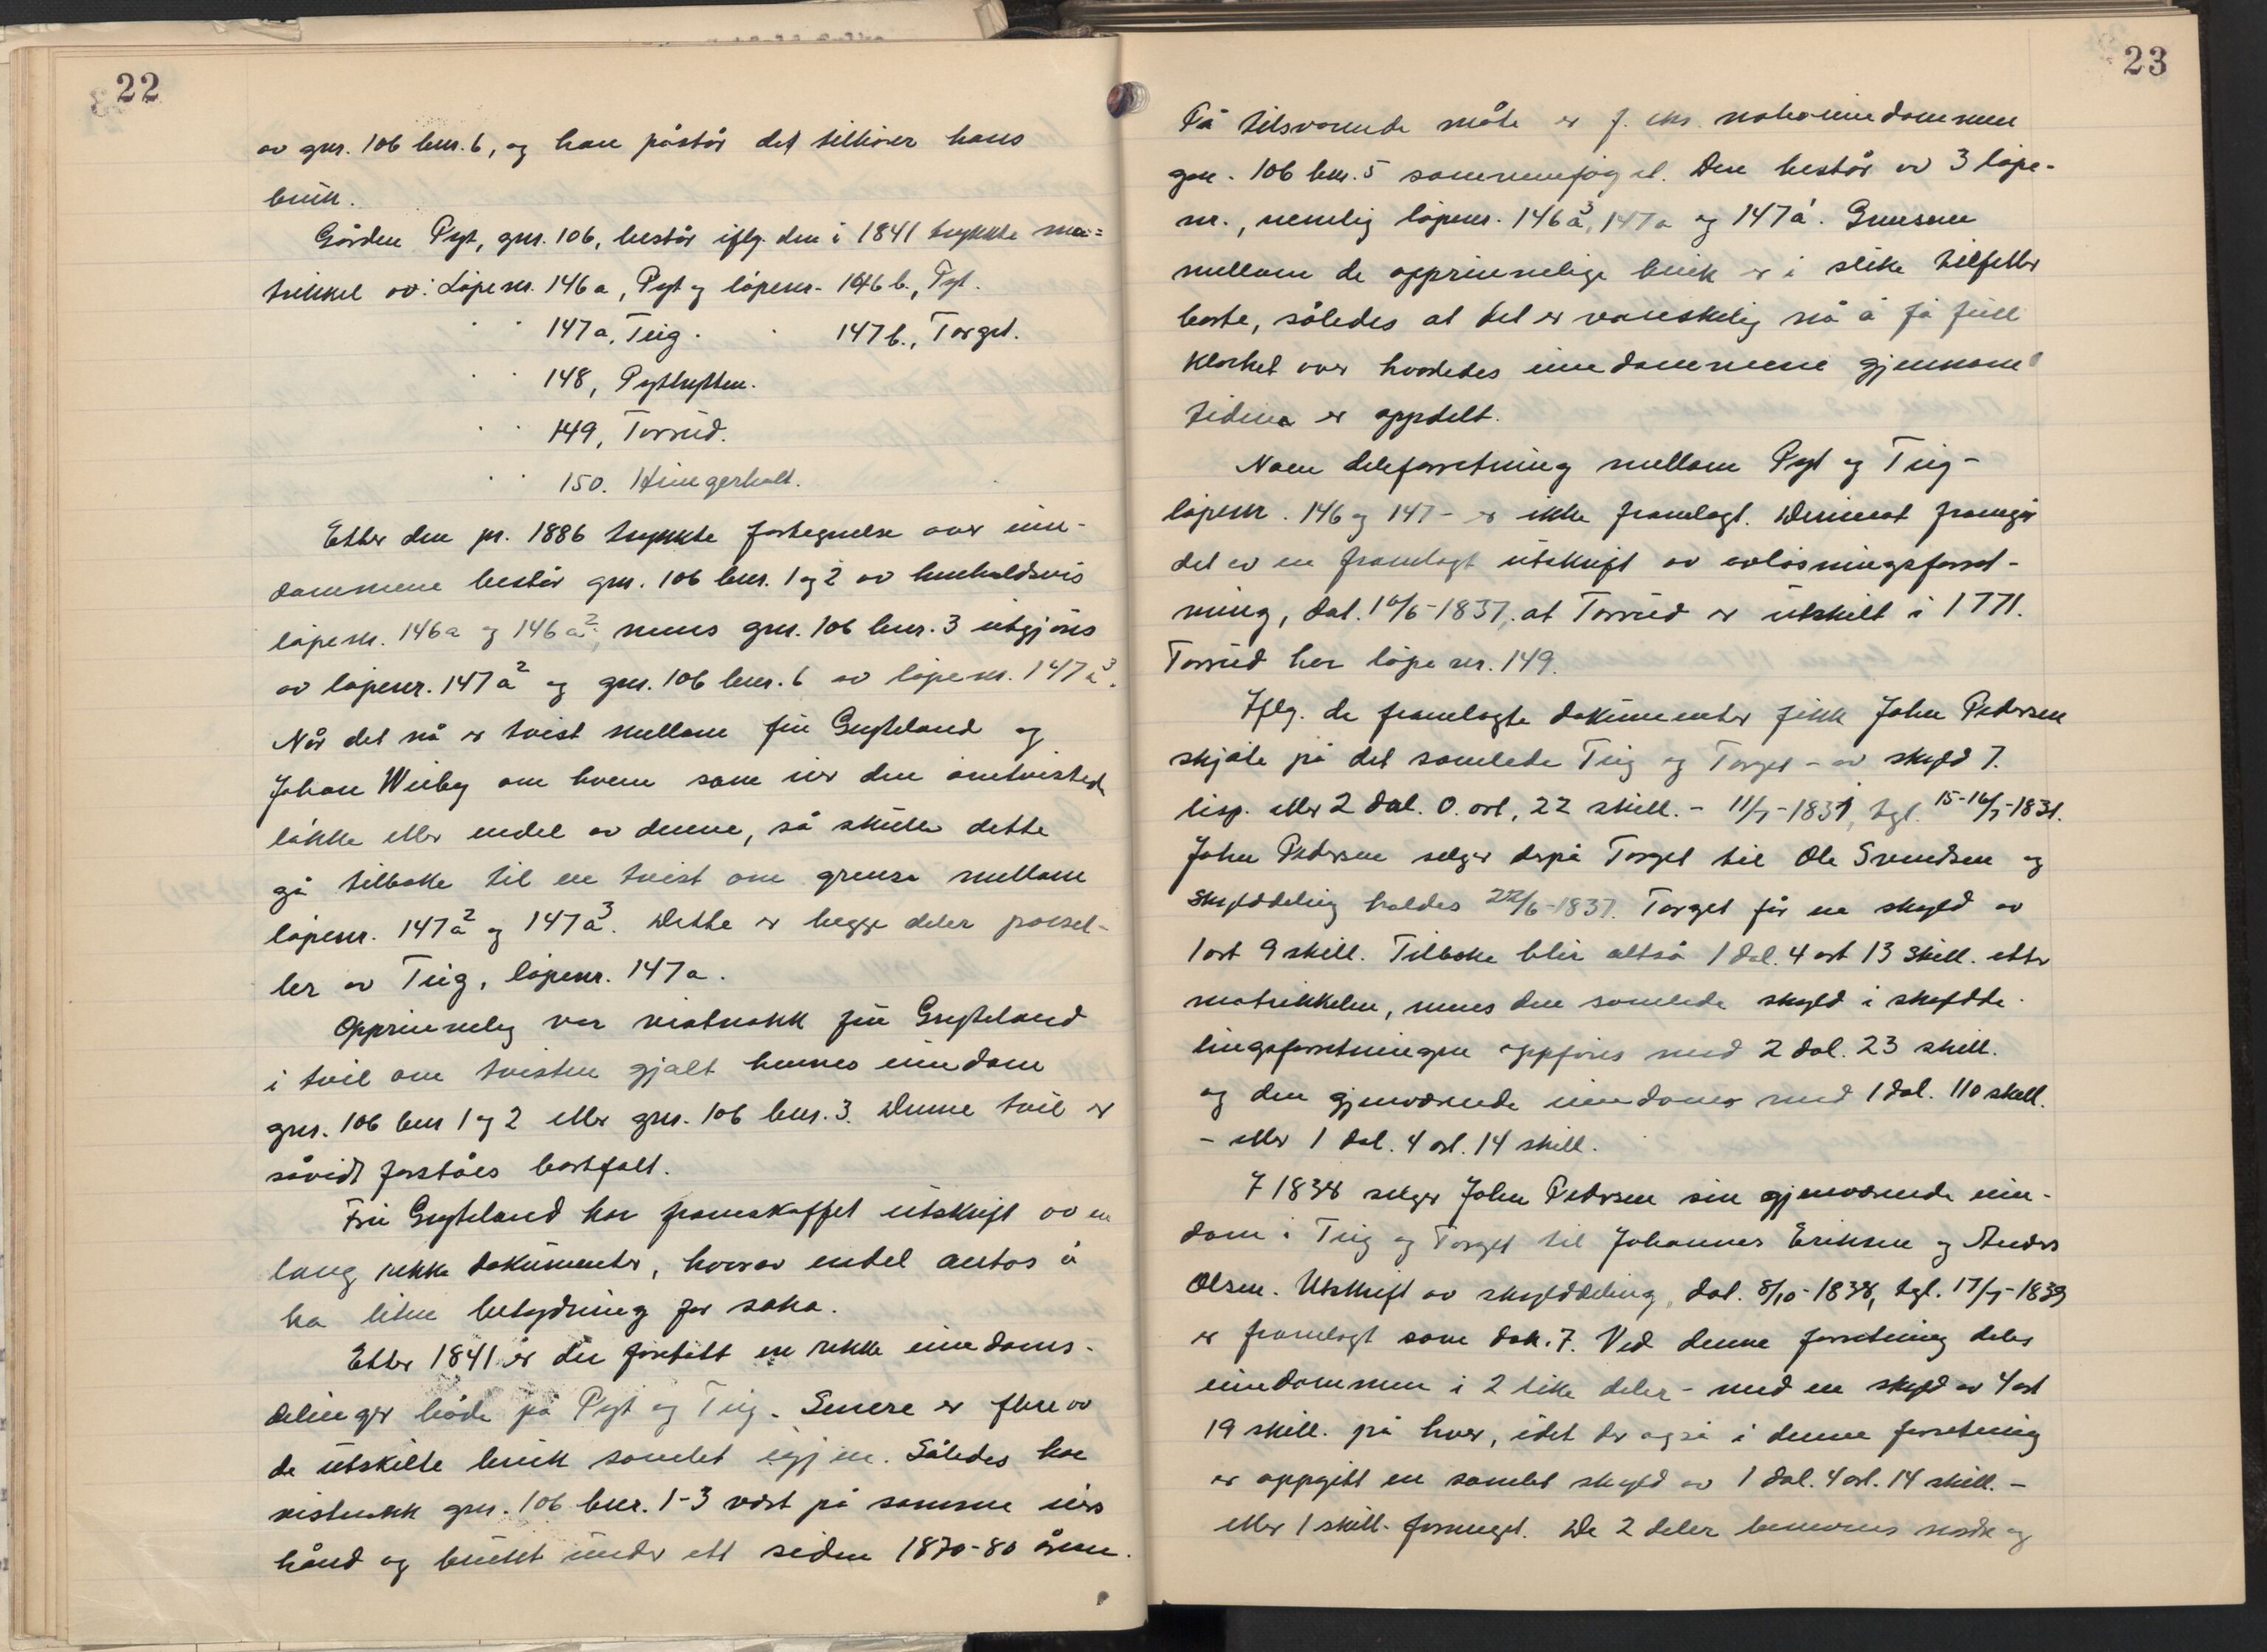 22
av gnr. 106 bnr. 6, og han påstår det tilhører hans
bruk.
Gården Pyt, gnr. 106, består iflg. den i 1841 trykkte ma-
trikkel av: Løpenr. 146a, Pyt og løpenr. 146 b., Pyt.
" " 147a, Teig. " 147 b., Torget.
" " 148, Pythytten.
" " 149, Torrud.
" " 150. Hungerholt.
Etter den pr. 1886 trykkte fortegnelse over eien-
dommene består gnr. 106 bnr. 1 og 2 av henholdsvis
løpenr. 146a og 146a², mens gnr. 106 bnr. 3 utgjøres
av løpenr. 147a² og gnr. 106 bnr. 6 av løpenr. 147a³.
Når det nå er tvist mellom fru Gryteland og
Johan Wiiby om hvem som eier den omtvistede
løkke eller endel av denne, så skulle dette
gå tilbake til en tvist om grensa mellom
løpenr. 147a² og 147a³. Dette er begge deler parsel-
ler av Teig, løpenr. 147a.
Opprinnelig var visstnokk fru Gryteland
i tvil om tvisten gjalt hennes eiendom
gnr. 106 bnr 1 og 2 eller gnr. 106 bnr. 3. Denne tvil er
såvidt forståes bortfalt.
Fru Gryteland har framskaffet utskrift av en
lang rekke dokumenter, hvorav endel antas å
ha liten betydning for saka.
Etter 1841 er der foretatt en rekke eiendoms-
delinger både på Pyt og Teig. Senere er flere av
de utskilte bruk samlet igjen. Således har
vistnokk gnr. 106 bnr. 1-3 vært på samme eiers
hånd og brukt under ett siden 1870-80 årene.
23
På tilsvarende måte er f. eks. naboeiendommen
gnr. 106 bnr. 5 sammenføyet. Den består av 3 løpe-
nr., nemlig løpenr. 146a³, 147a og 147a¹. Grensene
mellom de opprinnelige bruk er i slike tilfeller
borte, således at det er vanskelig nå å få full
klarhet over hvorledes eiendommene gjennom
tidene er oppdelt.
Noen deleforretning mellom Pyt og Teig -
løpenr. 146 og 147 - er ikke framlagt. Derimot framgår
det av en framlagt utskrift av avløsningsforret-
ning, dat. 10/6-1837, at Torrud er utskilt i 1771.
Torrud har løpenr. 149.
Iflg. de framlagte dokumenter fikk John Pedersen
skjøte på det samlede Teig og Torget - av skyld 7.
lisp. eller 2 dal. 0. ort, 22 skill. - 11/7-1831, tgl. 15-16/7-1831.
John Pedersen selger derpå Torget til Ole Svendsen og
skylddeling holdes 22/6-1837. Torget får en skyld av
1 ort 9 skill. Tilbake blir altså 1 dal. 4 ort 13 skill. etter
matrikkelen, mens den samlede skyld i skyldde-
lingsforretningen oppføres med 2 dal. 23 skill.
og den gjenværende eiendoms med 1 dal. 110 skill.
- eller 1 dal. 4 ort. 14 skill.
I 1838 selger John Pedersen sin gjenværende eien-
dom i Teig og Torget til Johannes Eriksen og Anders
Olsen. Utskrift av skylddeling, dat. 8/10-1838, tgl. 17/7-1839
er framlagt som dok. 7. Ved denne forretning deles
eiendommen i 2 like deler - med en skyld av 4 ort
19 skill. på hver, idet der også i denne forretning
er oppgitt en samlet skyld av 1 dal. 4 ort. 14 skill. -
eller 1 skill. formeget. De 2 deler benevnes nedre og